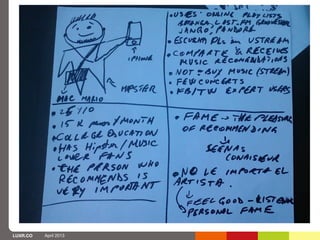 iPHONE
MASTER
MAC MARIO
• USES ONLINE PLAYLISTS
LAST.FM, GROOVESHARK
JANGO, PANDORA
• ESCUCHA DJs in USTREAM
• COMPARTE & RECEIVES
MUSIC RECOMENDATIONS
• NOT BUY MUSIC (STREAM)
• FEW CONCERTS
• FB/TW EXPERT USERS
• 25 Y/O
• 15 K MONTH
• COLLEGE EDUCATION
• HAS Hipster / MUSIC
LOVER FANS
• THE PERSON WHO
RECOMMENDS IS
VERY IMPORTANT
• FAME → THE PLEASURE
OF RECOMENDING
SEEN AS
CONAISEUR
• NO LE IMPORTA EL
ARTISTA.
FEEL GOOD - LISTEN
PERSONAL FAME
LUXR.CO April 2013